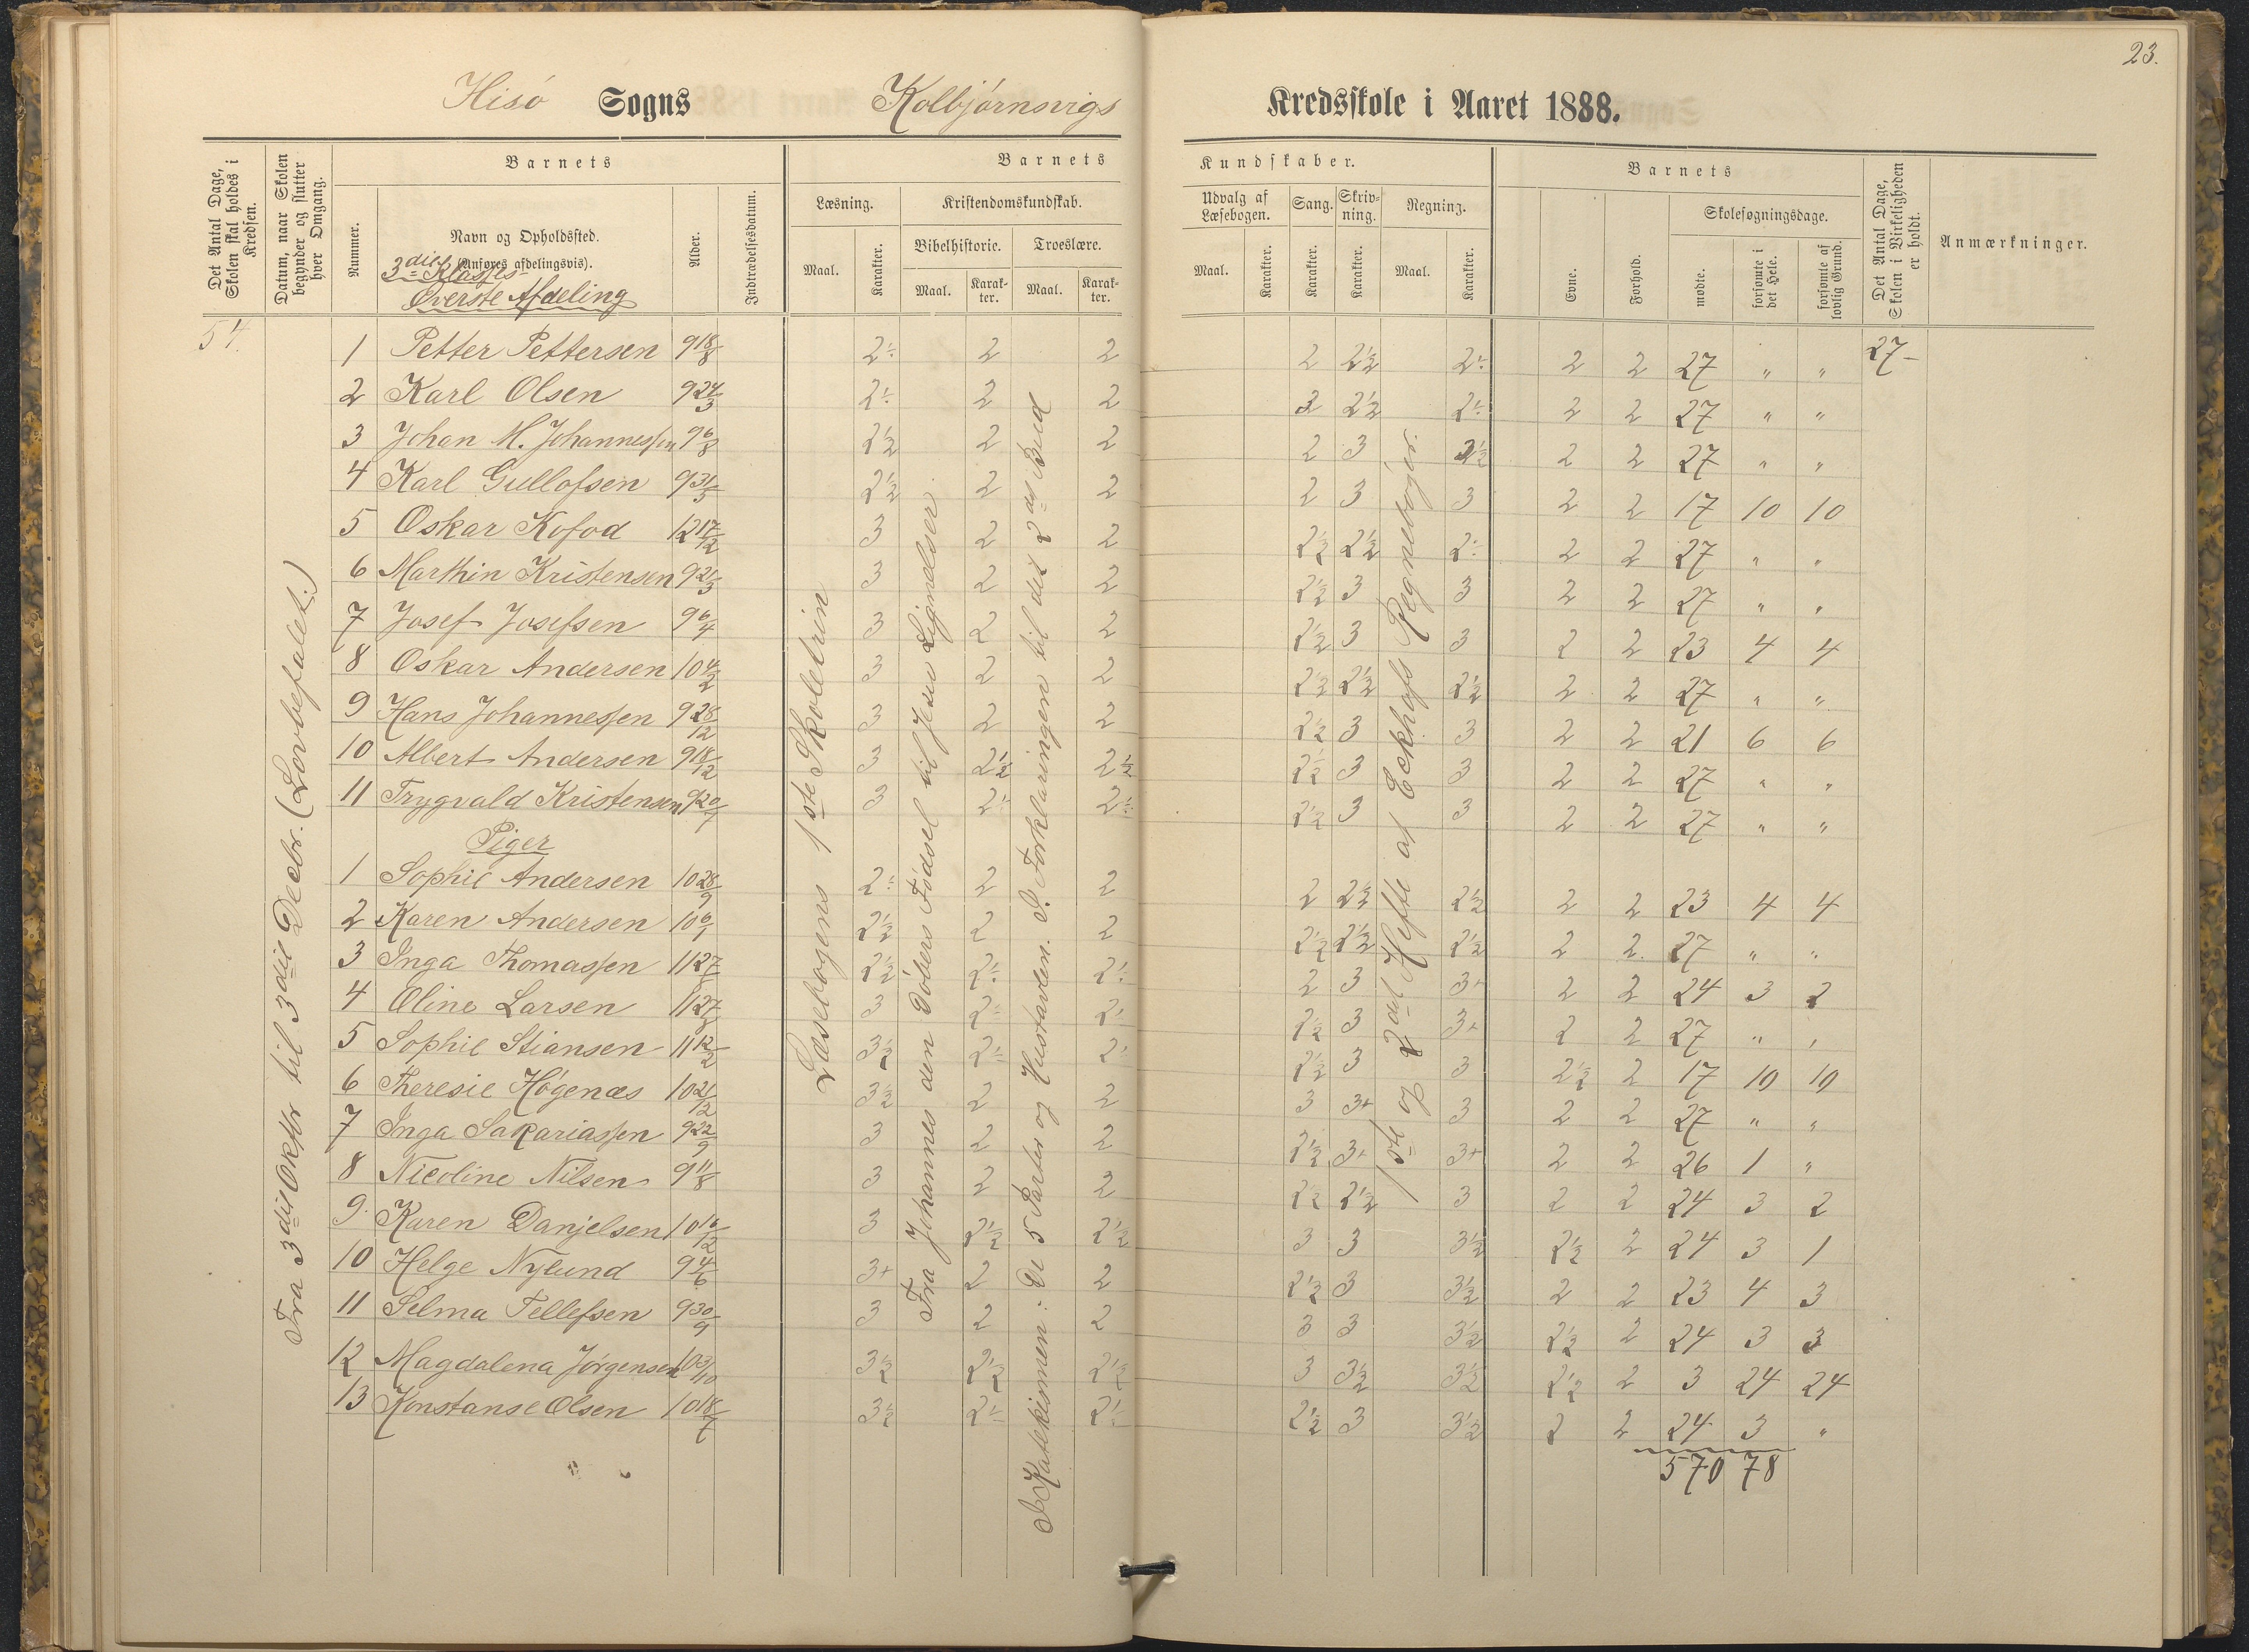 23.
Hisö Sogns Kolbjörnsvigs Kredsskole i Aaret 1888.
Det Antal Dage, Skolen skal holdes i Kredsen.
Datum, naar Skolen begynder og slutter hver Omgang.
Barnets
Nummer.
Navn og Opholdssted.
(Anføres afdelingsvis).
3die Klasses
Överste Afdeling
Alder.
Indtrædelsesdatum.
Barnets Kundskaber.
Læsning. Kristendomskundskab. Udvalg af Læsebogen. Sang. Skrivning. Regning.
Bibelhistorie. Troeslære.
Maal. Karakter. Maal. Karakter. Maal. Karakter. Maal. Karakter. Karakter. Karakter. Maal. Karakter.
Barnets
Evne. Forhold. Skolesøgningsdage.
mødte. forsømte i det Hele. forsømte af lovlig Grund.
Det Antal Dage, Skolen i Virkeligheden er holdt.
Anmærkninger.
54.
Fra 3die Oktbr til 3die Decbr. (Lovbefalet.)
Læsebogens 1ste Skoletrin
Fra Johannes den Döbers Födsel til Jesu Lignelser.
I Katekismen: De 5 Parter og Hustavlen. I Forklaringen til det 2det Bud
1ste og 2det Hefte af Eckhofs Regnebøger.
1 Petter Pettersen 9 18/8 2÷ 2 2 2 2½ 2÷ 2 2 27 " " 27
2 Karl Olsen 9 24/3 2÷ 2 2 3 2½ 2÷ 2 2 27 " "
3 Johan M. Johannessen 9 6/8 2½ 2 2 2 3 2½ 2 2 27 " "
4 Karl Gullofsen 9 31/3 2½ 2 2 2 3 3 2 2 17 10 10
5 Oskar Kofod 12 17/12 3 2 2 2½ 2½ 2÷ 2 2 27 " "
6 Marthin Kristensen 9 21/3 3 2 2 2½ 3 3 2 2 27 " "
7 Josef Josefsen 9 6/4 3 2 2 2½ 3 3 2 2 23 4 4
8 Oskar Andersen 10 4/2 3 2 2 2½ 2½ 2½ 2 2 27 " "
9 Hans Johannessen 9 28/12 3 2 2 2½ 3 3 2 2 21 6 6
10 Albert Andersen 9 18/12 3 2½ 2½ 2½ 3 3 2 2 27 " "
11 Trygvald Kristensen 9 20/7 3 2÷ 2÷ 2½ 3 3 2 2 27 " "
Piger
1 Sophie Andersen 10 28/9 2÷ 2 2 2 2½ 2½ 2 2 23 4 4
2 Karen Andersen 10 6/1 2½ 2 2 2½ 2½ 2½ 2 2 27 " "
3 Inga Thomassen 11 27 2½ 2÷ 2÷ 2 3 3+ 2 2 24 3 2
4 Oline Larsen 11 27 3 2÷ 2÷ 2½ 3 3+ 2 2 27 " "
5 Sophie Stiansen 11 12/2 3½ 2÷ 2÷ 2½ 3 3 2½ 2 17 10 10
6 Theresie Högenæs 10 21/12 3½ 2 2 3 3+ 3 2 2 27 " "
7 Inga Sakariassen 9 22/9 3 2 2 2½ 3+ 3+ 2 2 26 1 "
8 Nicoline Nilsen 9 11/8 3 2 2 2½ 2½ 3 2 2 24 3 2
9. Karen Danjelsen 10 16/12 3 2½ 2½ 3 3 3½ 2½ 2 24 3 1
10 Helge Nylund 9 4/6 3+ 2 2 2½ 3 3½ 2 2 23 4 3
11 Selma Tellefsen 9 30/9 3 2 2 3 3 3½ 2½ 2 24 3 3
12 Magdalena Jörgensen 10 3/10 3½ 2½ 2½ 3 3½ 3½ 2½ 2 3 24 24
13 Konstanse Olsen 10 18/7 3½ 2÷ 2÷ 2½ 3 3½ 2 2 24 3 "
570 78